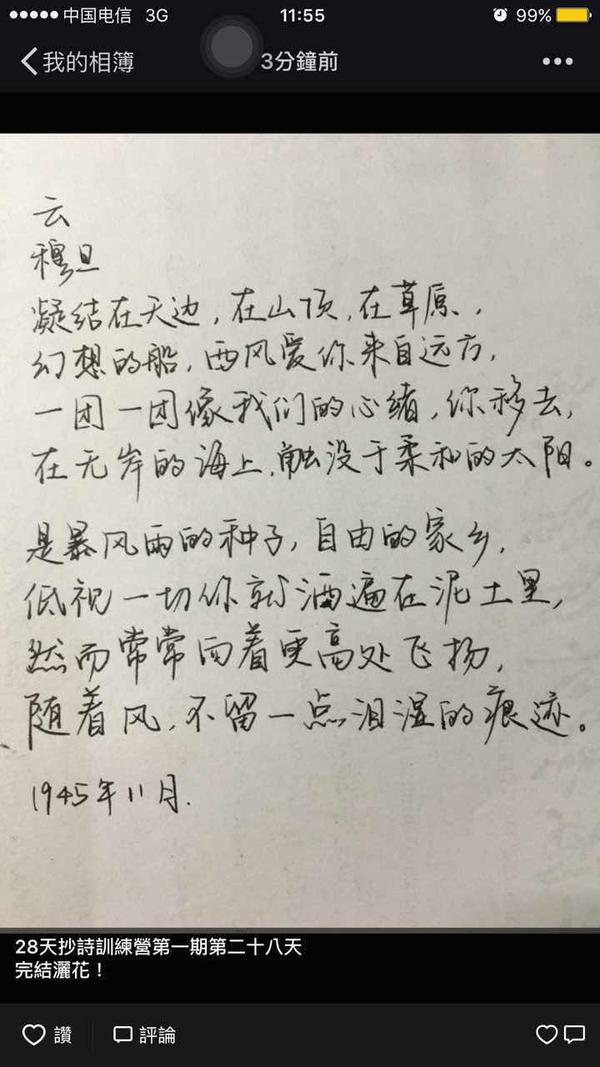 中国电信 3G 11:55 99%
我的相簿 3分鐘前
云
穆旦
凝结在天边，在山顶，在草原，
幻想的船，西风爱你来自远方，
一团一团像我们的心绪，你移去，
在无岸的海上，触没于柔和的太阳。
是暴风雨的种子，自由的家乡，
低视一切你就洒遍在泥土里，
然而常常向着更高处飞扬，
随着风，不留一点泪湿的痕迹。
1945年11月.
28天抄詩訓練營第一期第二十八天
完結灑花！
讚 評論